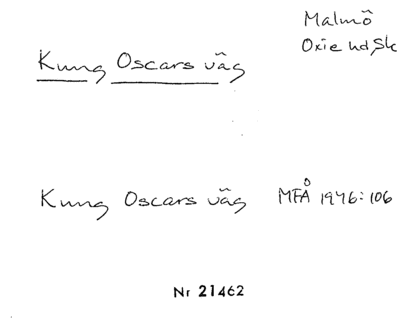 Malmö
Oxie hd, Sk
Kung Oscars väg
Kung Oscars väg MFÅ 1946:106
Nr 21462